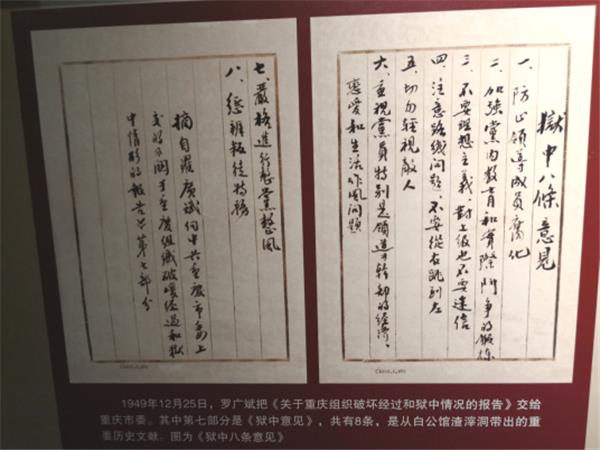 獄中八條意見
一、防止領導成員腐化
二、加強黨內教育和實際鬥爭的鍛煉
三、不要理想主義、對上級也不要迷信
四、注意路綫問題、不要從右跳到左
五、切勿輕視敵人
六、重視黨員特別是領導幹部的經濟、
戀愛和生活作風問題
七、嚴格進行整黨整風
八、懲辦叛徒特務
摘自羅廣斌向中共重慶市委上
交的《關于重慶組織破壞經過和獄
中情形的報告》第七部分
1949年12月25日,罗广斌把《关于重庆组织破坏经过和狱中情况的报告》交给
重庆市委。其中第七部分是《狱中意见》,共有8条,是从白公馆渣滓洞带出的重
要历史文献。图为《狱中八条意见》